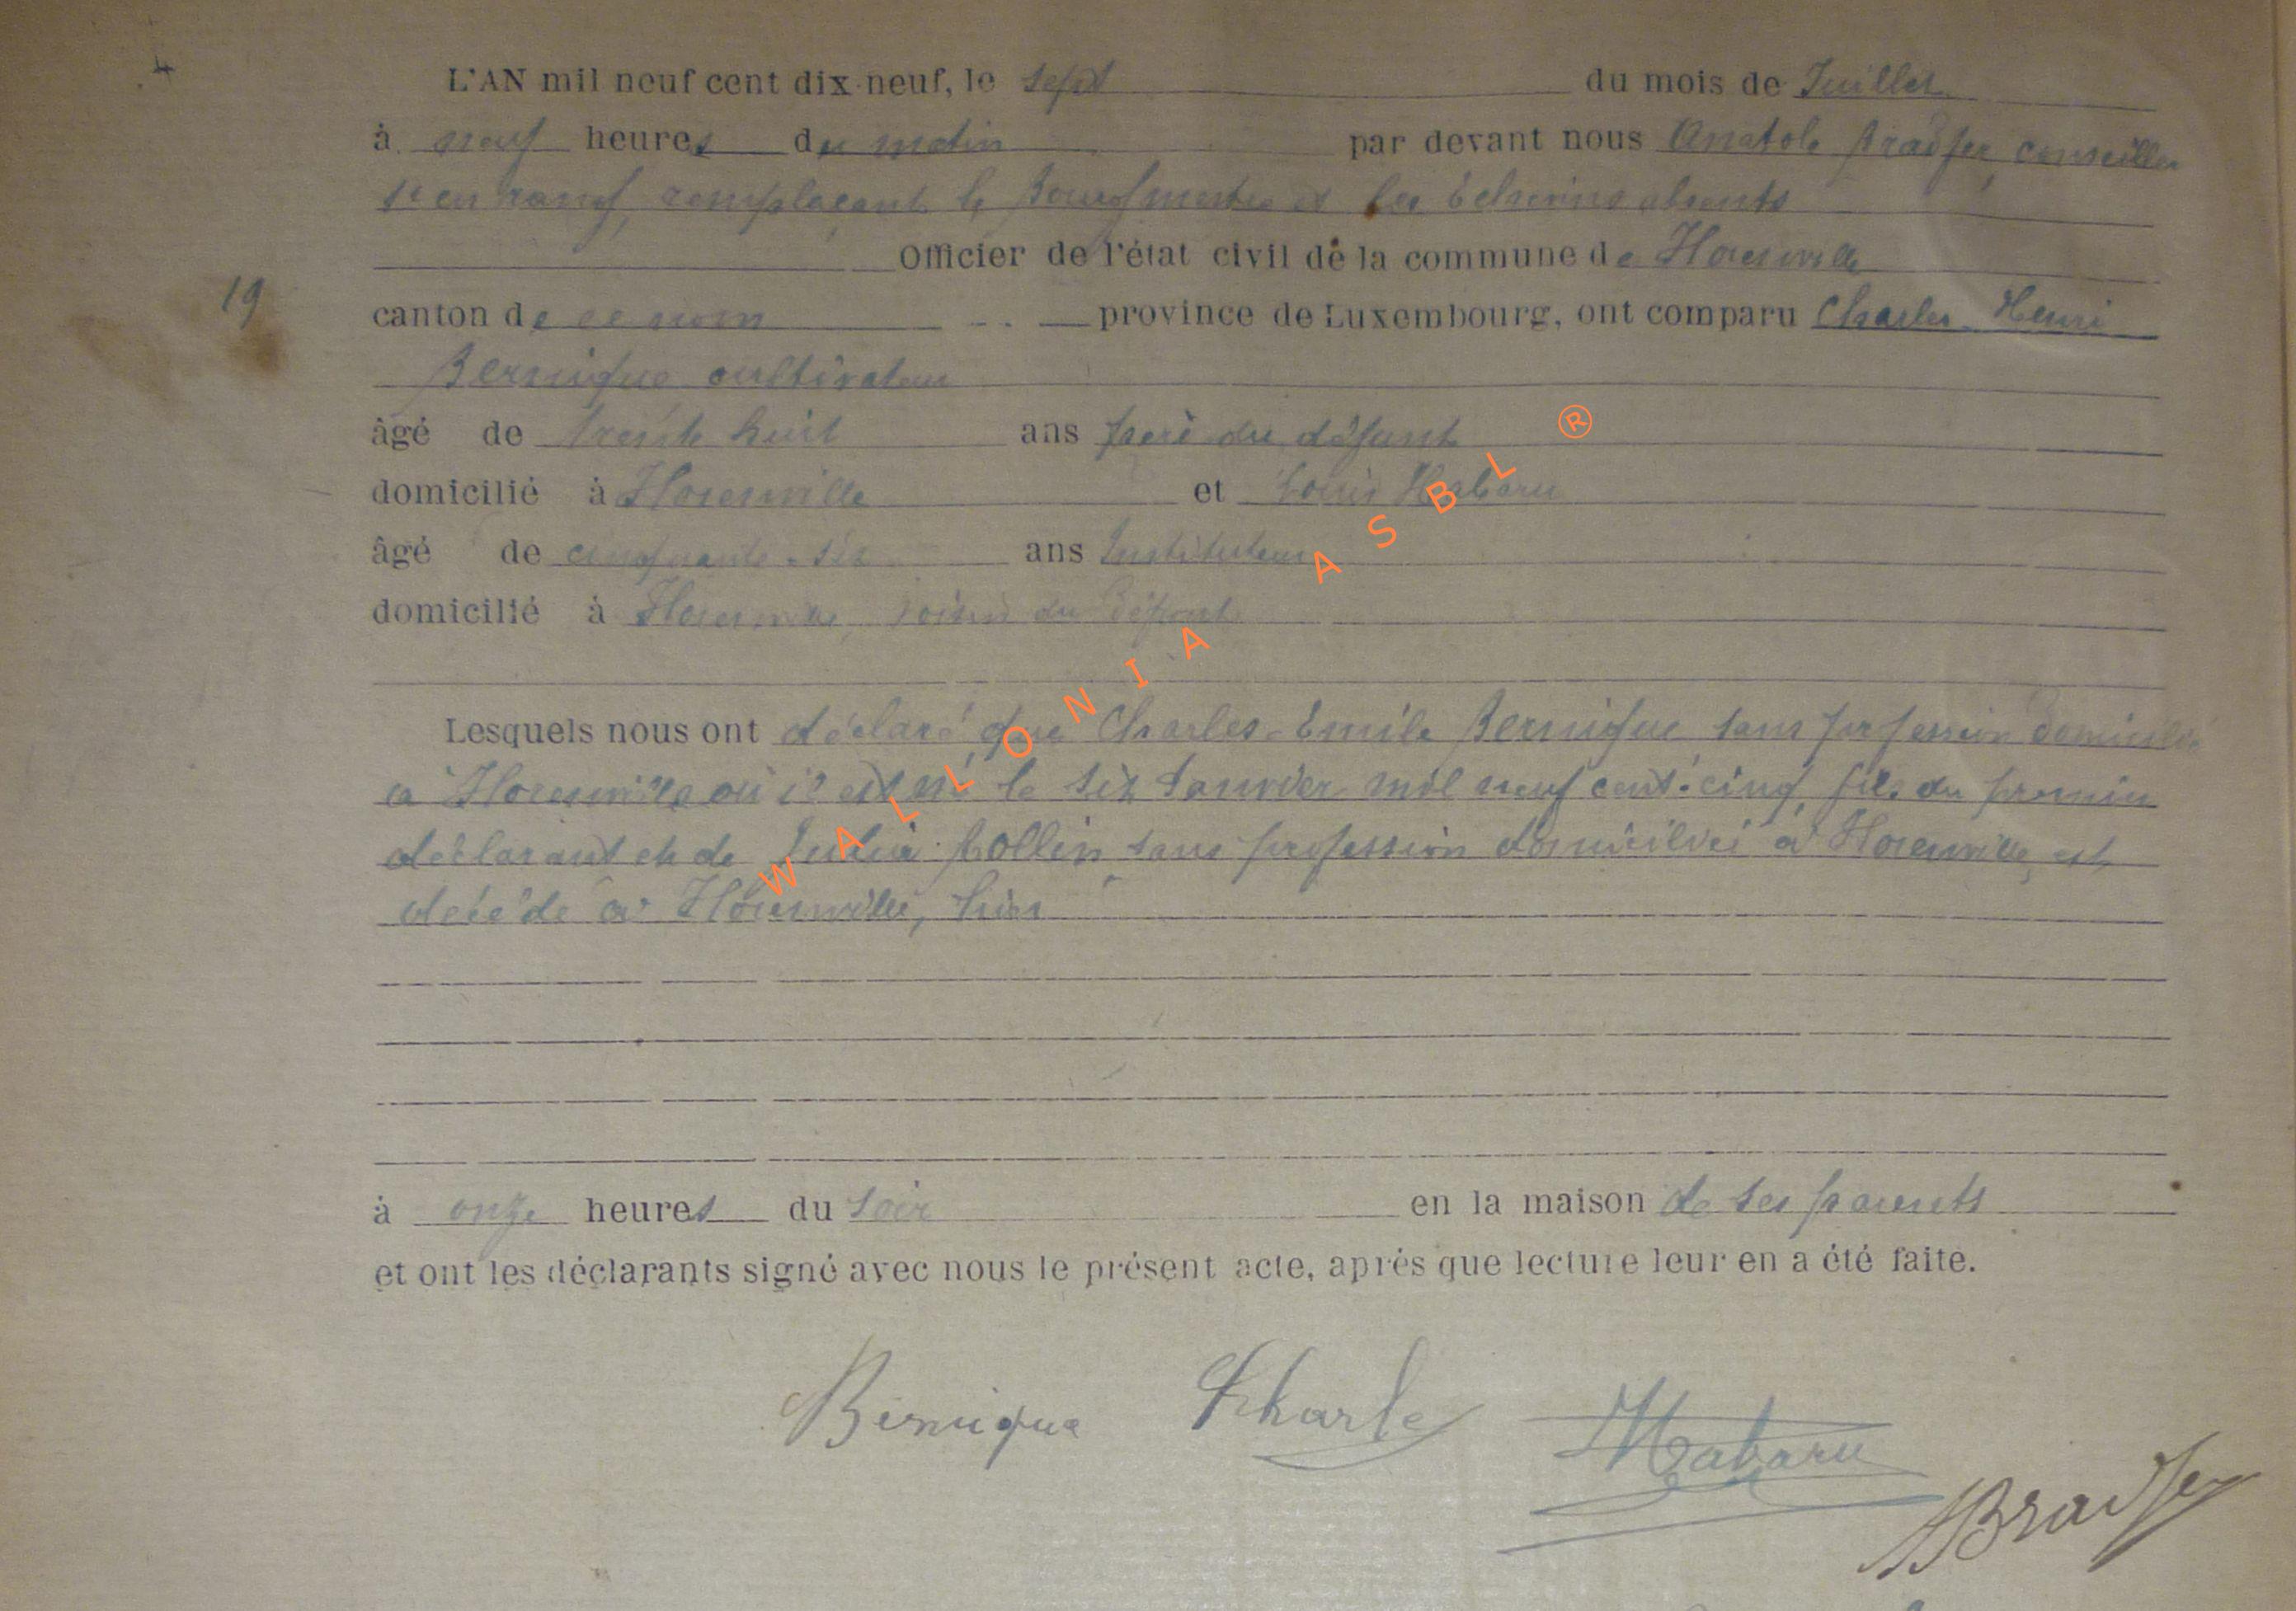 L'AN mil neuf cent dix-neuf, le sept du mois de Juillet
à neuf heures du matin par devant nous Anatole conseiller
1er en rang, remplaçant le Bourgmestre et les échevins absents
Officier de l'état civil de la commune de Florenville
19
canton de ce nom province de Luxembourg, ont comparu Charles Henri
Bernique cultivateur
âgé de trente huit ans père du défunt
domicilié à Florenville et Louis Habaru
âgé de cinquante-six ans Instituteur
domicilié à Florenville, voisin du défunt
Lesquels nous ont déclaré que Charles-Emile Bernique sans profession domicilié
à Florenville où il est né le six Janvier mil neuf cent cinq, fils du premier
déclarant et de Collin, sans profession domiciliée à Florenville, est
décédé à Florenville, hier
à onze heures du soir en la maison de ses parents
et ont les déclarants signé avec nous le présent acte, après que lecture leur en a été faite.
Bernique Charle Habaru
WALLONIA ASBL ®